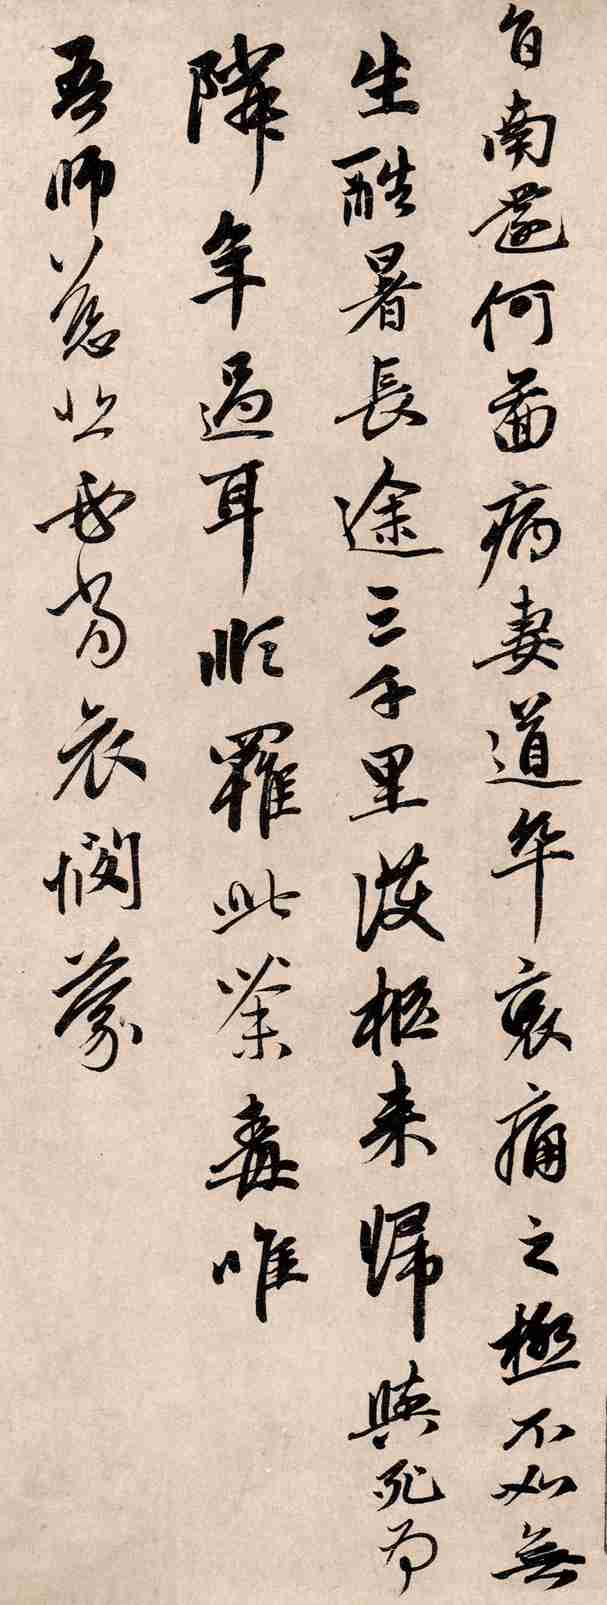 自南還何圖病妻道卒哀痛之極不如無
生酷暑長途三千里護柩来歸與死為
隣年過耳順罹此荼毒唯
吾師慈悲必當哀憫蒙